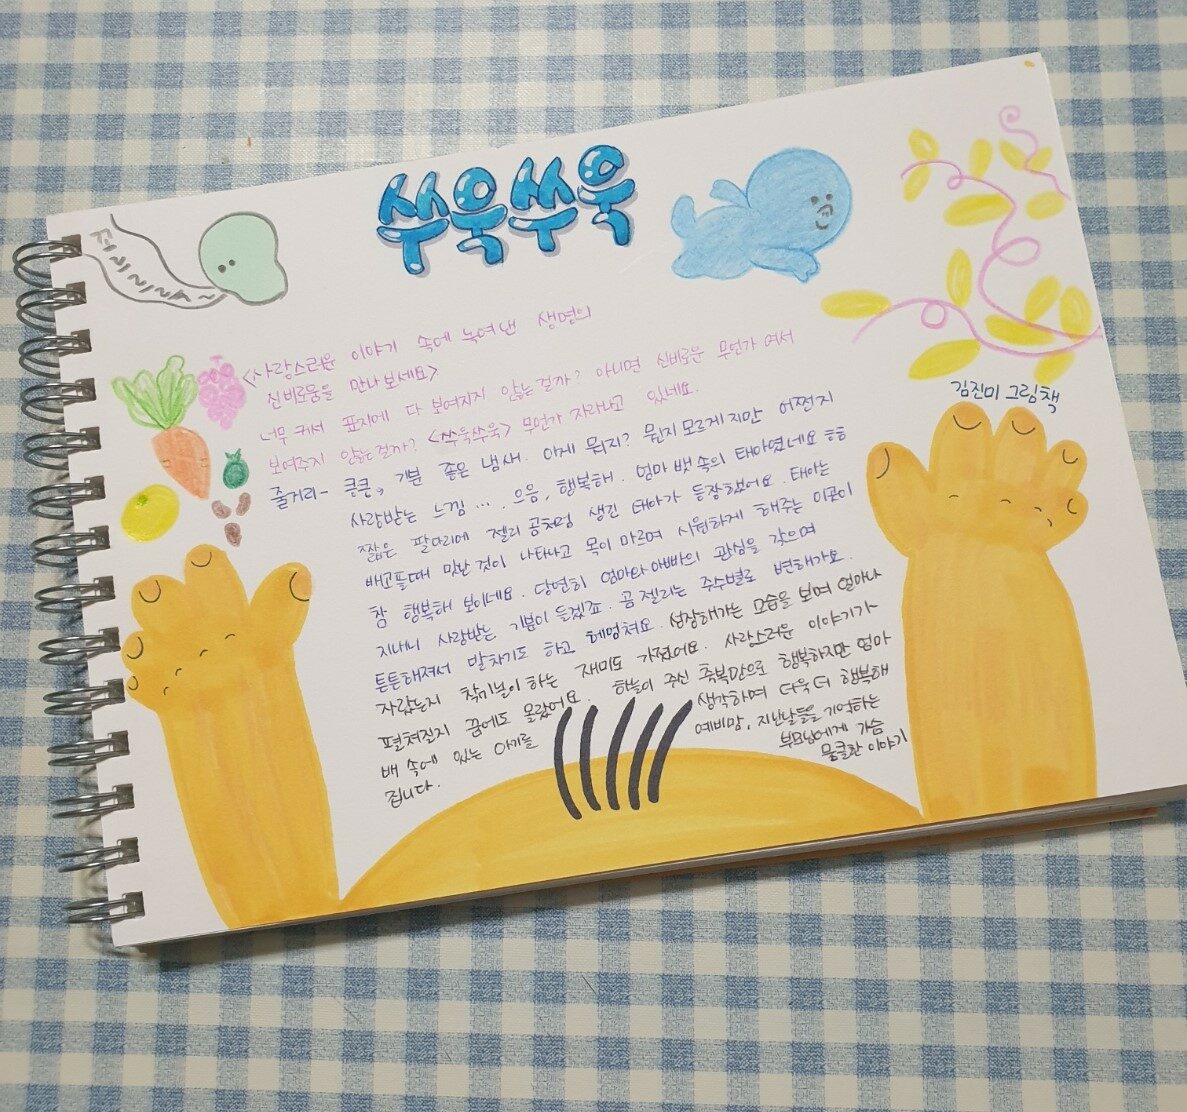 쑤욱쑤욱
<사랑스러운 이야기 속에 녹여낸 생명의
신비로움을 만나보세요>
너무 커서 표지에 다 보여지지 않는걸까? 아니면 신비로운 무언가 여서
보여주지 않는걸까? <쑤욱쑤욱> 무언가 자라나고 있네요.
김진미 그림책
줄거리- 킁킁, 기분 좋은 냄새. 이게 뭐지? 뭔지 모르게지만 어쩐지
사랑받는 느낌 ... 으음, 행복해. 엄마 뱃속의 태아였네요 ㅎㅎ
짧은 팔다리에 젤리곰처럼 생긴 태아가 등장했어요. 태아는
배고플때 맛난 것이 나타나고 목이 마르며 시원하게 해주는 이곳이
참 행복해 보이네요. 당연히 엄마와 아빠의 관심을 갖으며
지내니 사랑받는 기분이 들겠죠. 곰젤리는 주수별로 변해가요.
튼튼해져서 발차기도 하고 헤엄쳐요. 성장해가는 모습을 보며 얼마나
자랐는지 작가님이 하는 재미도 가졌어요. 사랑스러운 이야기가
펼쳐질지 꿈에도 몰랐어요. 하늘이 주신 축복만으로 행복하지만 엄마
배 속에 있는 아기를 생각하며 더욱 더 행복해
집니다. 예비맘, 지난날들을 기억하는
부모님에게 가슴
뭉클한 이야기